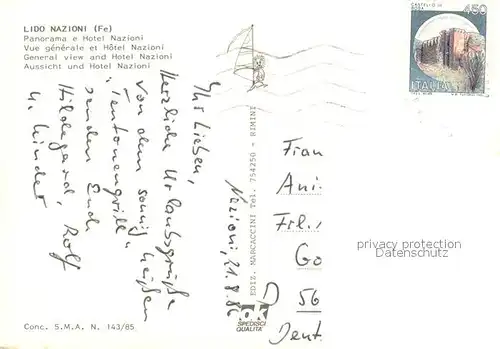 LIDO NAZIONI (Fe)
Panorama e Hotel Nazioni
Vue générale et Hôtel Nazioni
General view and Hotel Nazioni
Aussicht und Hotel Nazioni
450
CASTELLO DI
BOSA
ITALIA
Nazioni, 21.8.86
Ihr Lieben,
Herzliche Urlaubsgrüße
von dem sonnig heißen
"Teutonengrill"
senden Euch
Hildegard, Rolf
u. Kinder
EDIZ. MARCACCINI Tel. 754250 - RIMINI
Frau
Ani
Frl.
Go
D 56
Deut
privacy protection
Datenschutz
ok
SPEDISCI
QUALITÀ
Conc. S.M.A. N. 143/85